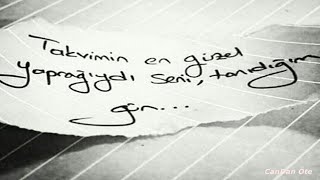 Takvimin en güzel
yaprağıydı seni, tanıdığım
gün...
CanDan Öte